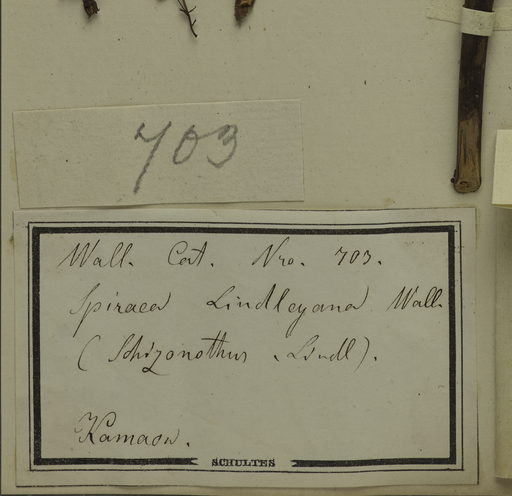 703
Wall. Cat. Nro. 703.
Spiraea Lindleyana Wall.
(Schizonothus Lindl).
Kamaon.
SCHULTES